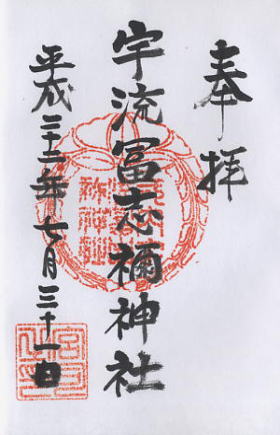 奉拝
宇流冨志禰神社
平成二十二年七月三十一日